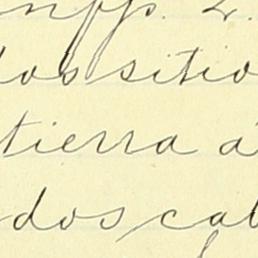 dos sitio
tierra a
dos cab